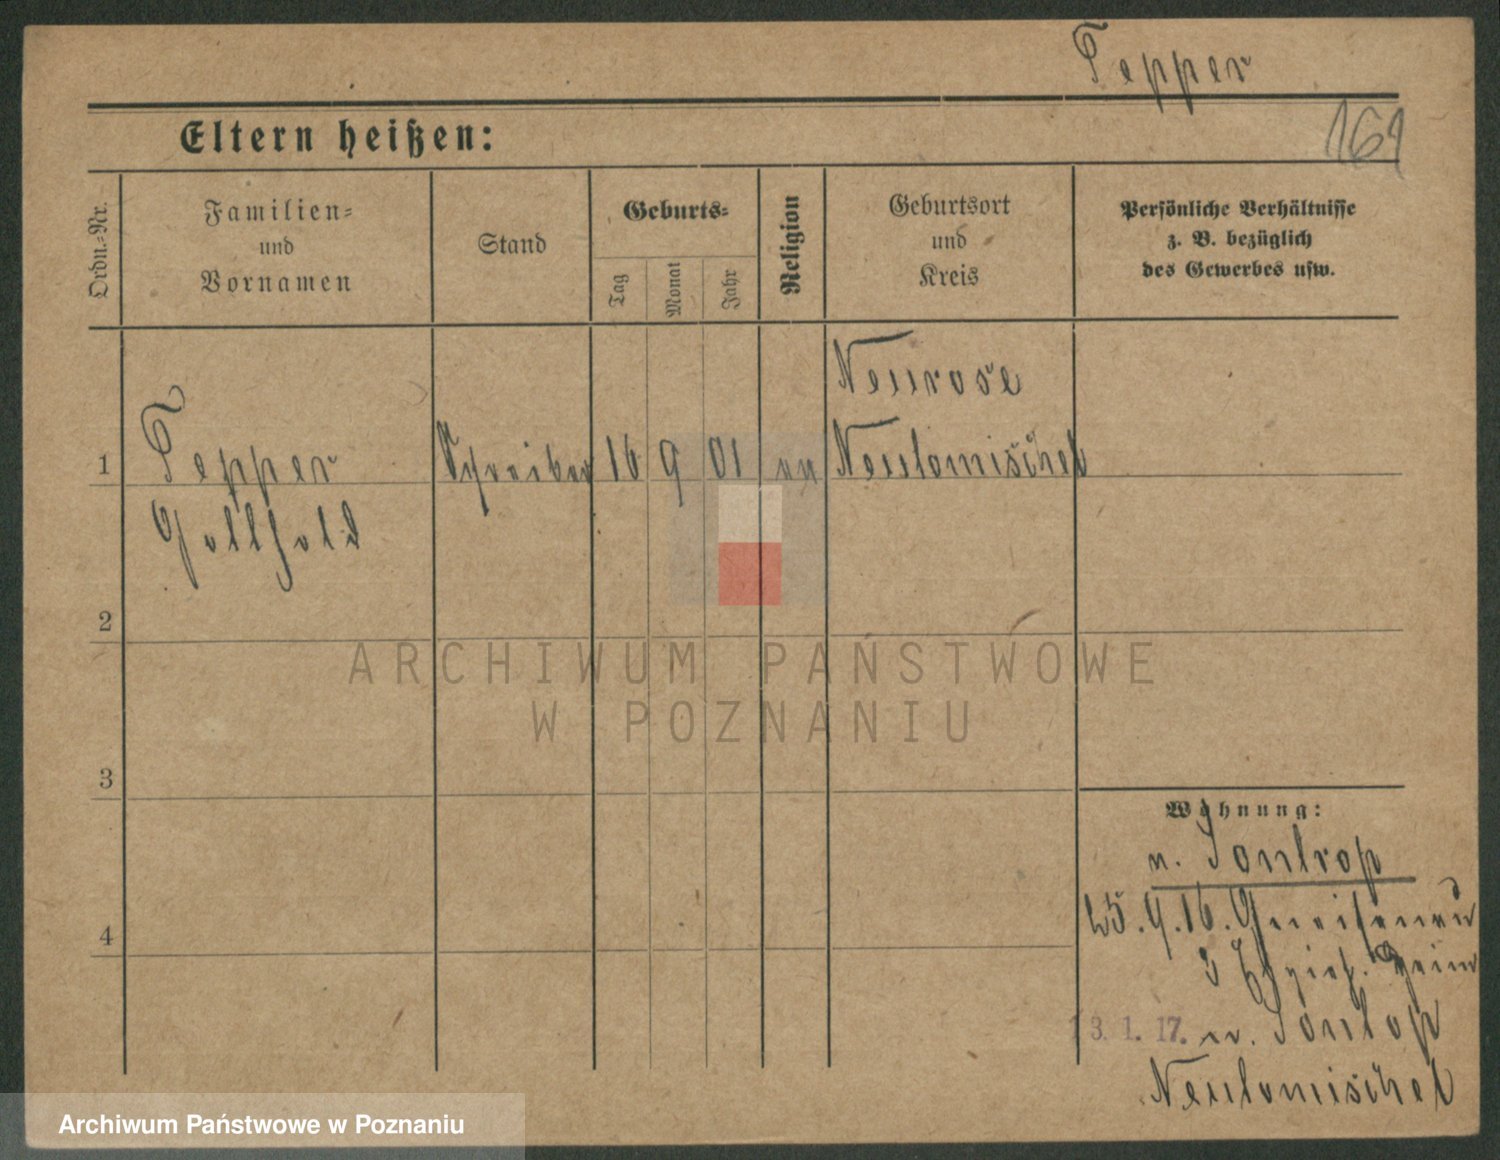 Tepper
161
Eltern heißen:
Ordn.=Nr.
Familien=
und
Vornamen
Stand
Geburts=
Tag
Monat
Jahr
Religion
Geburtsort
und
Kreis
Persönliche Verhältnisse
z. B. bezüglich
des Gewerbes usw.
Neurose
1 Tepper Schreiber 16 9 01 ev Neutomischel
Gotthold
2
ARCHIWUM PAŃSTWOWE
W POZNANIU
3
Wohnung:
n. Sontop
25.9.16. Gneisenau
Erzieh. Heim
13.1.17. n. Sontop
4
Neutomischel
Archiwum Państwowe w Poznaniu